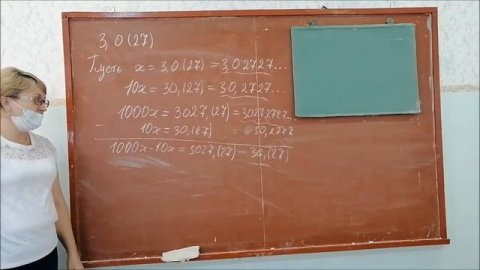 3,0(27)
Пусть x = 3,0(27) = 3,02727...
10x = 30,(27) = 30,2727...
1000x = 3027,(27) = 3027,2727...
- 10x = 30,(27) = 30,2727
1000x - 10x = 3027,(27) - 30,(27)